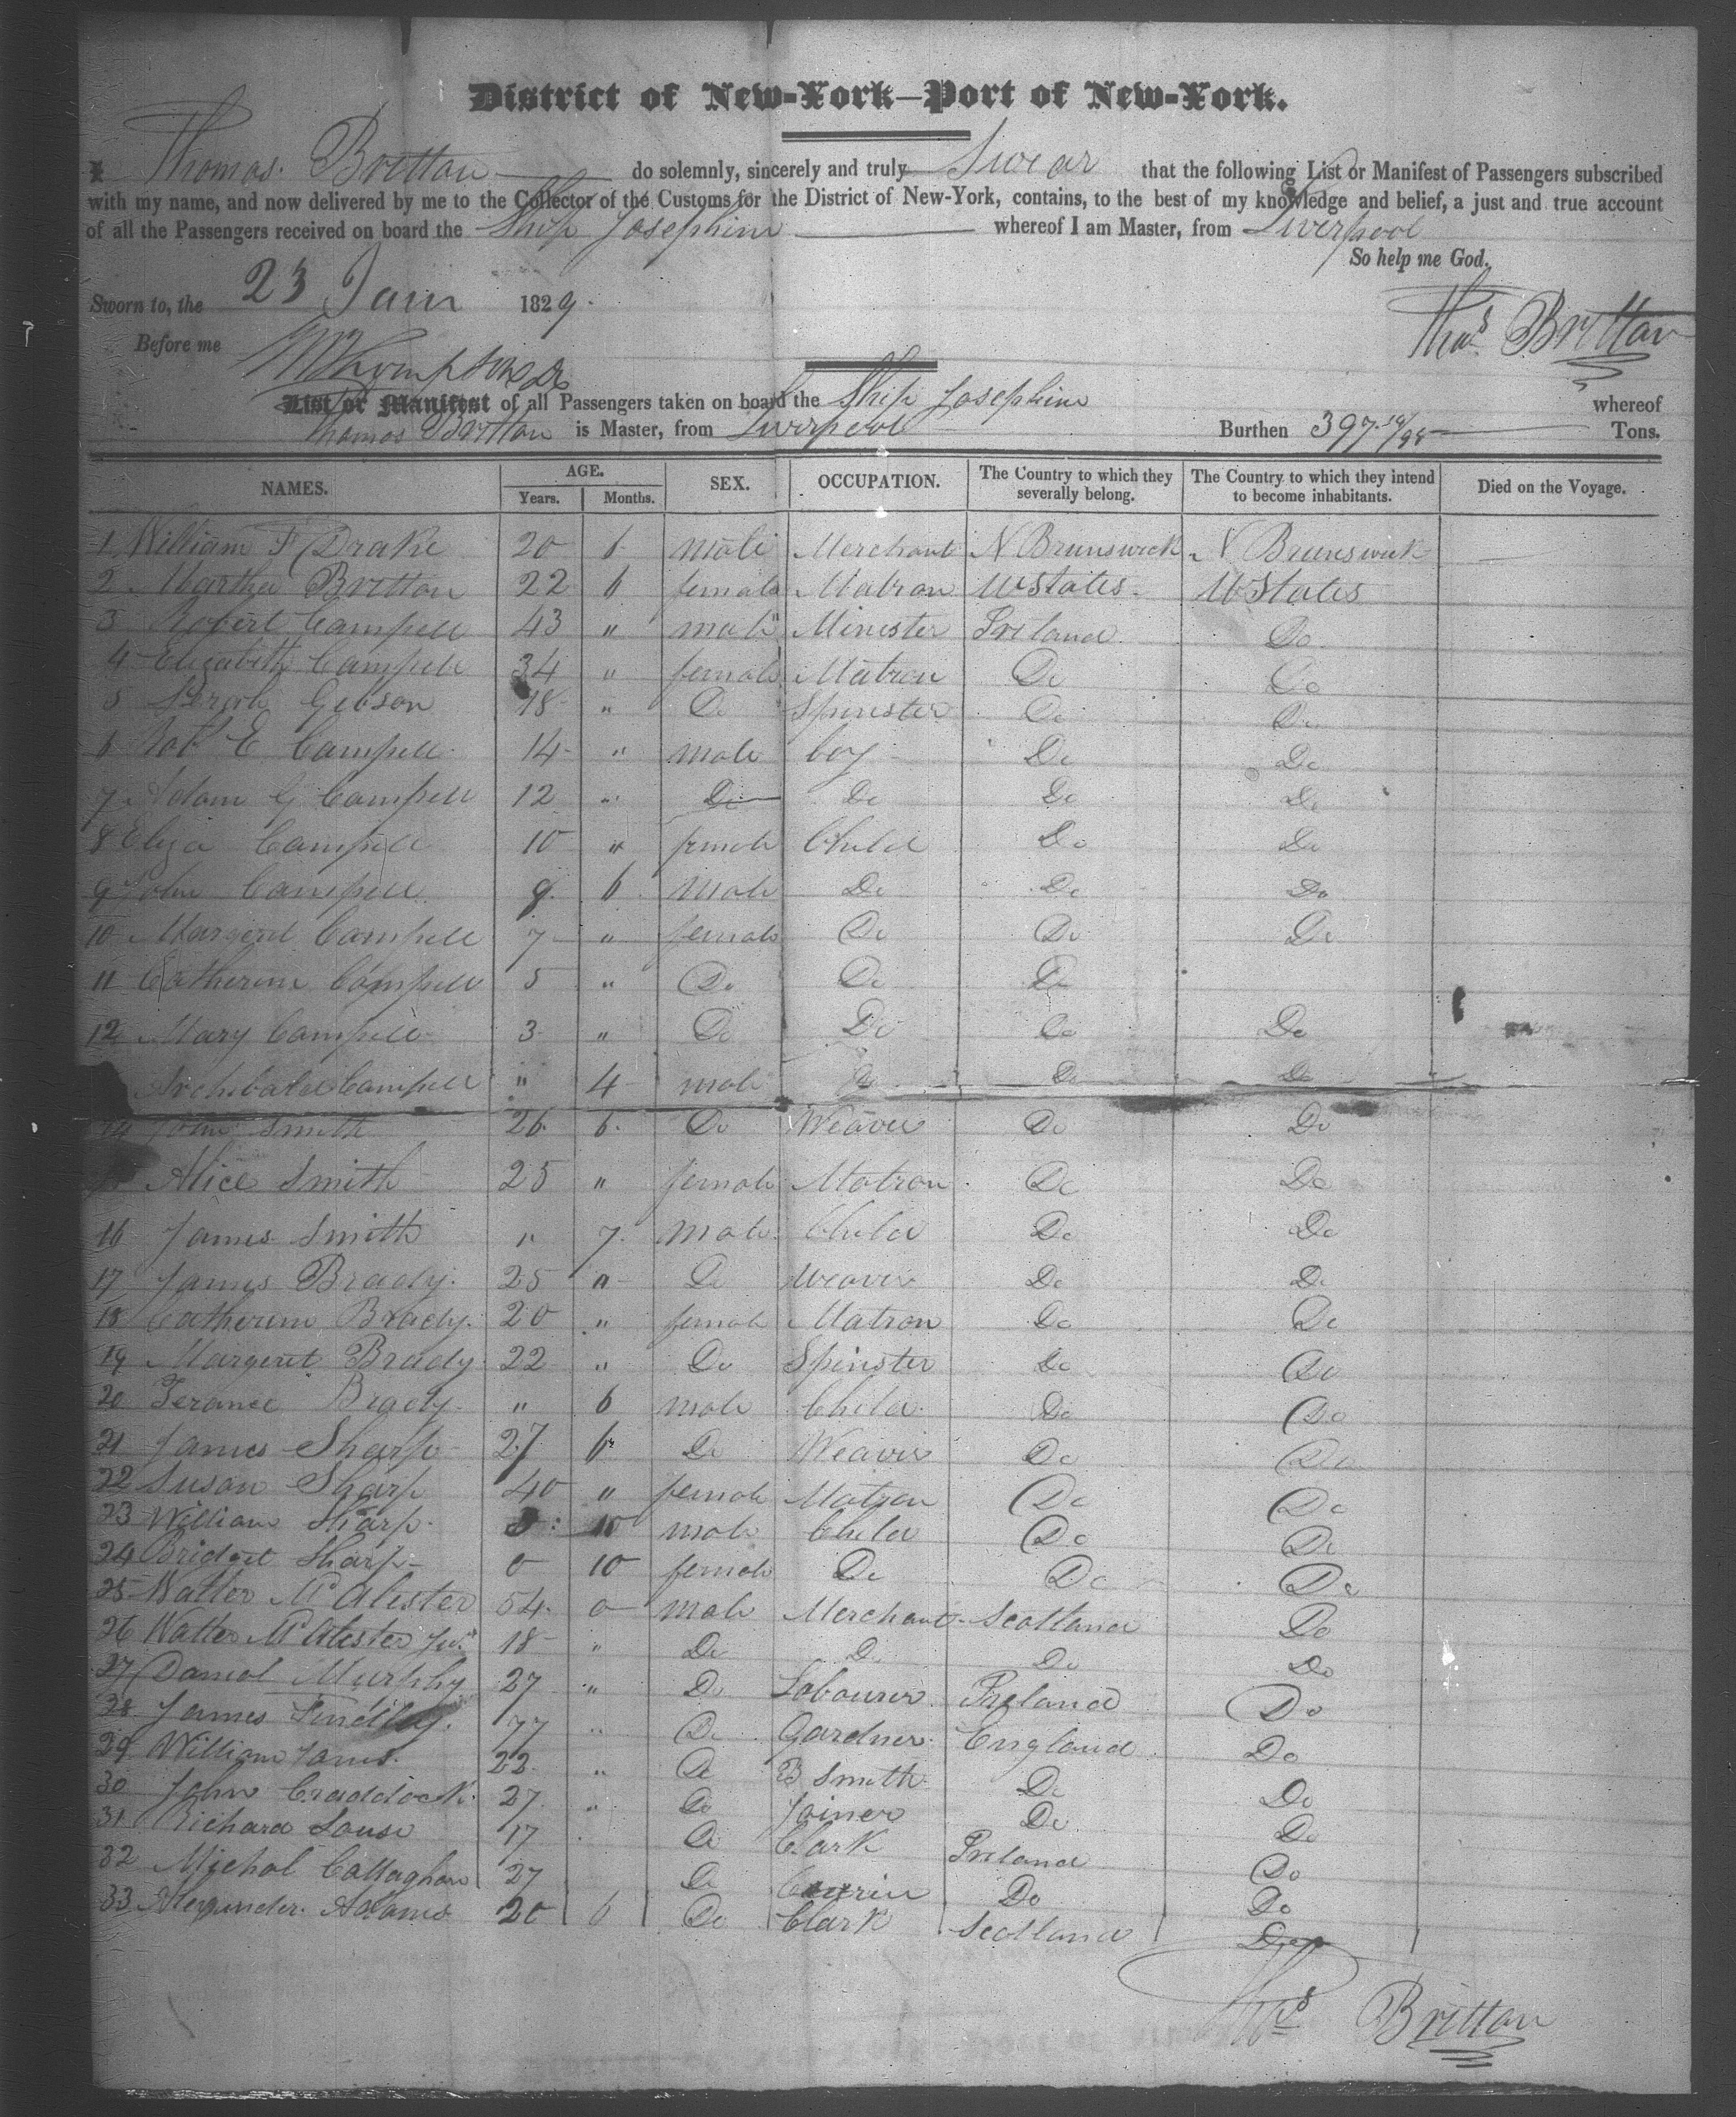 District of New-York—Port of New-York.
I Thomas Britton do solemnly, sincerely and truly Swear that the following List or Manifest of Passengers subscribed
with my name, and now delivered by me to the Collector of the Customs for the District of New-York, contains, to the best of my knowledge and belief, a just and true account
of all the Passengers received on board the Ship Josephine whereof I am Master, from Liverpool
So help me God.
Sworn to, the 23 1829.
Thos Britton
Before me
List or Manifest of all Passengers taken on board the Ship Josephine whereof
Thomas Britton is Master, from Liverpool Burthen 397 Tons.
NAMES. AGE. Years. Months. SEX. OCCUPATION. The Country to which they severally belong. The Country to which they intend to become inhabitants. Died on the Voyage.
1 William F Drake 20 6 male Merchant N Brunswick N Brunswick
2 Martha Britton 22 6 female Matron UStates. UStates
3 Robert Campell 43 " male Minister Ireland Do
4 Elizabeth Campell 34 " female Matron Do Do
5 Gibson 18 " Do Spinster Do Do
6 Robt E Campell 14 " male boy Do Do
7 Adam G Campell 12 " Do Do Do Do
8 Eliza Campell 10 " female Child Do Do
9 John Campell 9 6 male Do Do Do
10 Margeret Campell 7 " female Do Do Do
11 Catherine Campell 5 " Do Do Do
12 Mary Campell 3 " Do Do Do Do
Archibald Campell " 4 male Do Do Do
14 John Smith 26 6 Do Weaver Do Do
Alice Smith 25 " female Matron Do Do
16 James Smith " 7 male Child Do Do
17 James Brady 25 " Do Weaver Do Do
18 Catherine Brady 20 " female Matron Do Do
19 Margeret Brady 22 " Do Spinster Do Do
20 Terance Brady " 6 male Child Do Do
21 James Sharp 27 6 Do Weaver Do Do
22 Susan Sharp 40 " female Matron Do Do
23 William Sharp 10 male Child Do Do
24 Bridget Sharp 0 10 female Do Do Do
25 Walter McAlester 54 0 male Merchant Scotland Do
26 Walter McAlester Junr 18 " Do Do Do Do
27 Daniel Murphy 27 " Do Labourer Ireland Do
28 James Findlay 77 " Do Gardner England Do
29 William James 22 " Do B Smith Do Do
30 John Craddock 27 " Do Joiner Do Do
31 Richard 17 Do Clark Ireland Do
32 Michal Callaghan 27 Do Do Do
33 Alexander Adams 20 6 Do Clark Scotland Do
Thos Britton